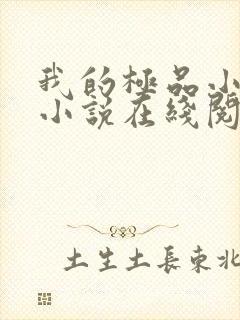 我的極品小
小說在綫閱
土生土長東北